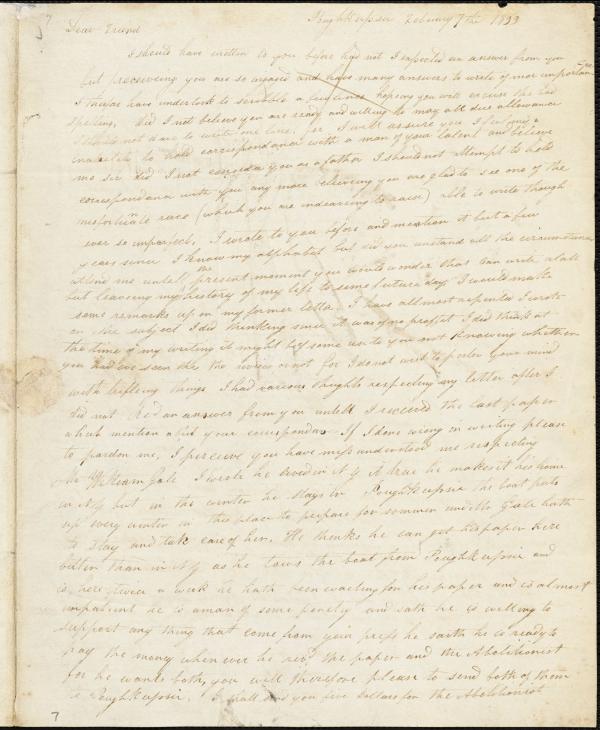 7
Poughkeepsie February 7th 1833
Dear Friend
I should have written to you before had not I expected an answer from you
but perceiveing you are so ingaged and have many answers to write of mor importance
I theirfore have undertook to scribble a few lines hopeing you will excuse the bad
spelling, did I not believe you are ready and willing to may all due allowance
I should not dare to write one line, for I will assure you I feel my
inability to hold correspondance with a man of your talent and believe
me sir did I not consider you as a father I should not attempt to hold
correspondance with you any more believing you are glad to see one of the
misfortunate race (which you are indeavering to raise) able to write though
ever so imparfect, I wrote to you before and mention it but a few
years since I know my alphabet but did you unstand all the circumstances
attend me untill the present moment you would wonder that I can write at all
but leaveing my history of my life to some future day I would make
some remarks up on my former letter. I have all most repented I wrote
on the subject I did thinking since it was of no proffit I did think at
the time of my writing it might be of some use to you not knowing whether
you had ever seen the review or not for I do not wish to pester your mind
with trifleing things I had various thoughts respecting my letter after I
did not Recd an answer from you untill I received the last paper
which mention abut your correspondas If I done wrong in writing please
to pardon me, I perceive you have miss understood me respecting
Mr William Gale I wrote he lived in N Y A true he makes it his home
in N Y but in the winter he stays in Poughkeepsie the boat puts
up every winter in this place to prepare for sommer and Mr Gale hath
to stay and take care of her. He thinks he can get his paper here
better than in N Y as he tows the boat from Poughkeepsie and
is here twice a week he hath been waiting for his paper and is almost
impatient he is a man of some penety and sath he is willing to
support any thing that come from your press he saith he is ready to
pay the mony when ever he recd the paper and the Abolitionist
for he wants both, you will therefore please to send both of them
to Poughkeepsie. I shall send you five dollars for the Abolitionist
7